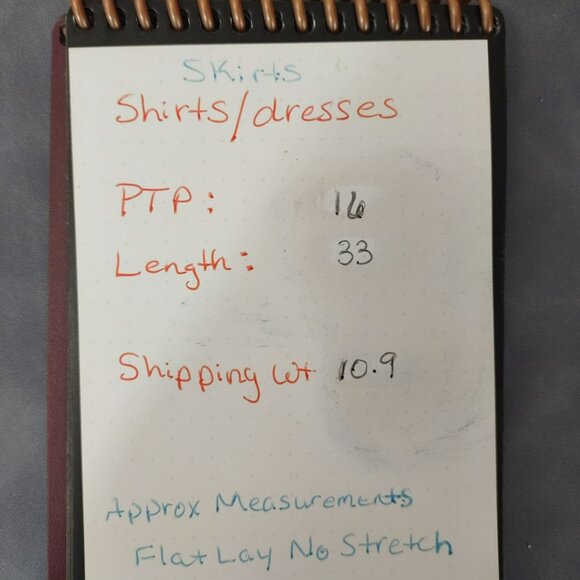 Skirts
Shirts/dresses
PTP: 16
Length: 33
Shipping Wt 10.9
Approx Measurements
Flat Lay No Stretch